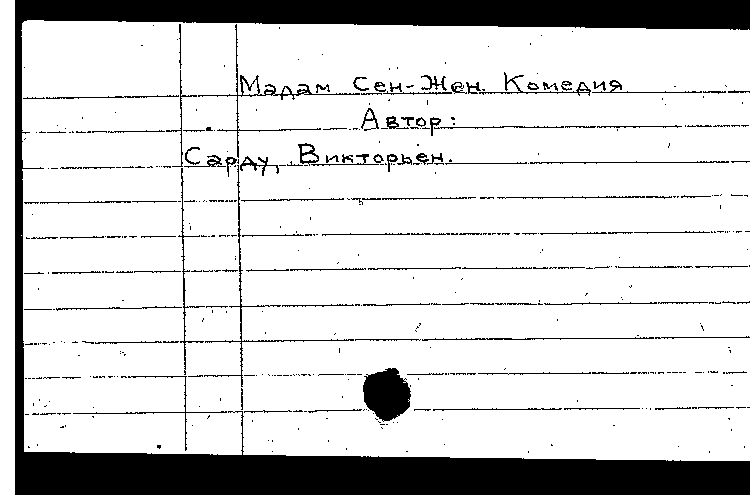 Мадам Сен-Жен. Комедия
Автор:
Сарду, Викторьен.